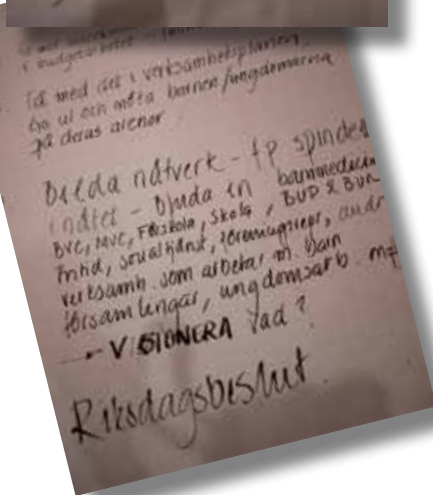 i budgetarbetet -
Ta med det i verksamhetsplanen!
Gå ut och möta barnen/ungdomarna
på deras arenor
Bilda nätverk - fp spindel
i nätet - Bjuda in barnmedicin
BVC, MVC, Förskola, Skola, BUP & BUM
Fritid, socialtjänst, föreningsrepr, andr
verksamh. som arbetar m. barn
församlingar, ungdomsarb. m
→ VISIONERA Vad?
Riksdagsbeslut.